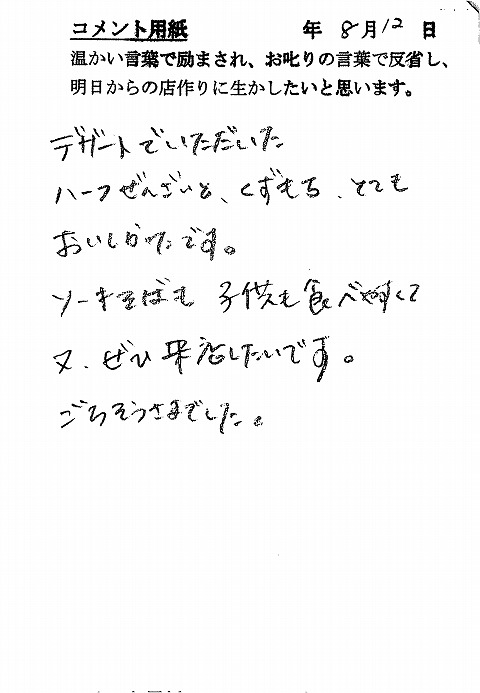 コメント用紙 年 8月12日
温かい言葉で励まされ、お叱りの言葉で反省し、
明日からの店作りに生かしたいと思います。
デザートでいただいた
ハーフぜんざいと、くずもち、とても
おいしかったです。
ソーキそばも 子供も食べやすくて
又、ぜひ来店したいです。
ごちそうさまでした。